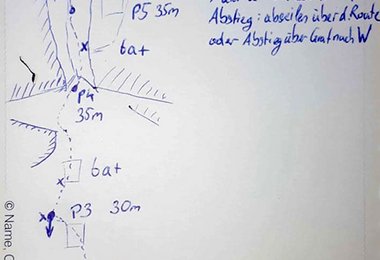 P5 35m
6a+
P4
35m
6a+
P3 30m
Abstieg: abseilen über d. Route
oder Abstieg über Grat nach W
© Name, C